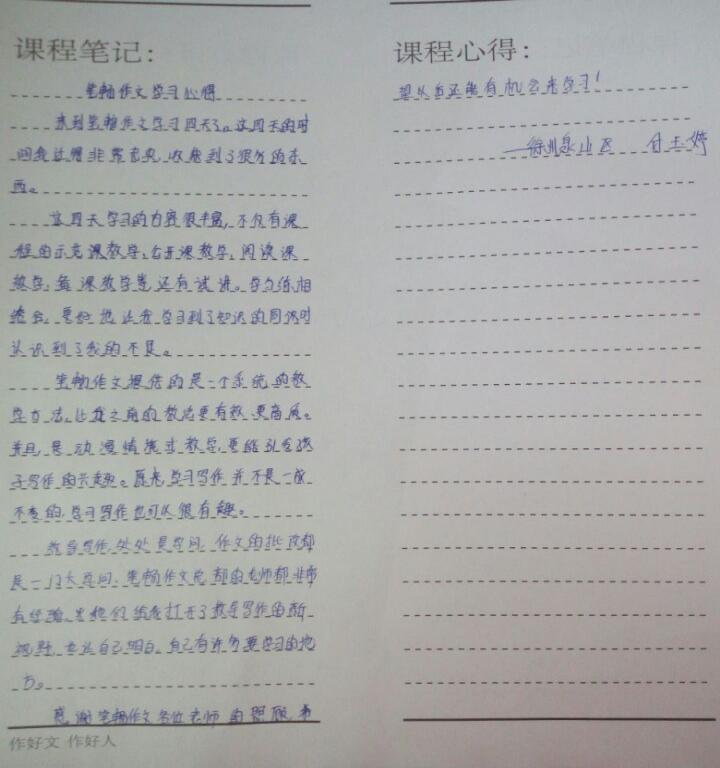 课程笔记：
笔畅作文学习心得
来到笔畅作文学习四天了。这四天的时
间我过得非常充实，收获到了很多的东
西。
这四天学习的内容很丰富，不仅有课
程的示范课教学，公开课教学，阅读课
教学，每课教学等还有试讲。学与练相
结合，更好地让我学习到了知识的同时
认识到了我的不足。
笔畅作文提供的是一个系统的教
学方法，比我之前的教法更有效，更高质。
并且，是动漫情境式教学，更能引起孩
子写作的兴趣。原来，学习写作并不是一成
不变的，学习写作也可以很有趣。
教导写作，处处是学问，作文的批改都
是一门大学问，笔畅作文总部的老师都非常
有经验，是他们给我打开了教导写作的新
视野，也让自己明白，自己有许多要学习的地
方。
感谢笔畅作文各位老师的照顾，希
作好文 作好人
课程心得：
望以后还能有机会来学习！
——徐州泉山区 付玉婷